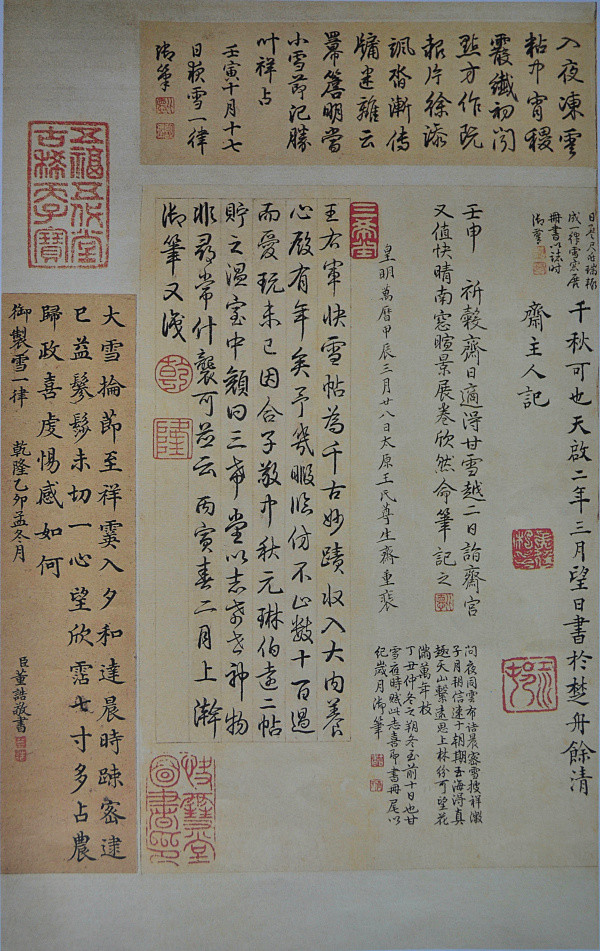 入夜凍雲
粘中宵稷
霰纖初聞
點方作
報片徐添
颯沓漸傳
牖迷離云
羃簷明當
小雪節記勝
叶祥占
壬寅十月十七
日夜雪一律
御筆
成一律雪窓展
冊書以誌時
御筆
千秋可也天啟二年三月望日書於楚舟餘清
齋主人記
壬申 祈穀齋日適得甘雪越二日詣齋宮
又值快晴南窓暄景展卷欣然命筆記之
問夜同雲布詰晨密雪披祥徵
子月朔信速十朝期玉海得真
趣天山繫遠思上林紛可望花
滿萬年枝
丁丑仲冬之朔冬至前十日也甘
雪應時賦此志喜即書冊尾以
紀歲月御筆
皇明萬曆甲辰三月廿八日太原王氏尊生齋重裝
三希堂
王右軍快雪帖為千古妙蹟收入大內養
心殿有年矣予幾暇臨仿不止數十百過
而愛玩未已因合子敬中秋元琳伯遠二帖
貯之溫室中顏曰三希堂以志希世神物
非尋常什襲可並云丙寅春二月上澣
御筆又識
乾
隆
五福五代堂
古稀天子寶
大雪掄節至祥霙入夕和達晨時踈密逮
巳益鬖髿未切一心望欣霑七寸多占農
歸政喜虔惕感如何
御製雪一律 乾隆乙卯孟冬月
臣董誥敬書